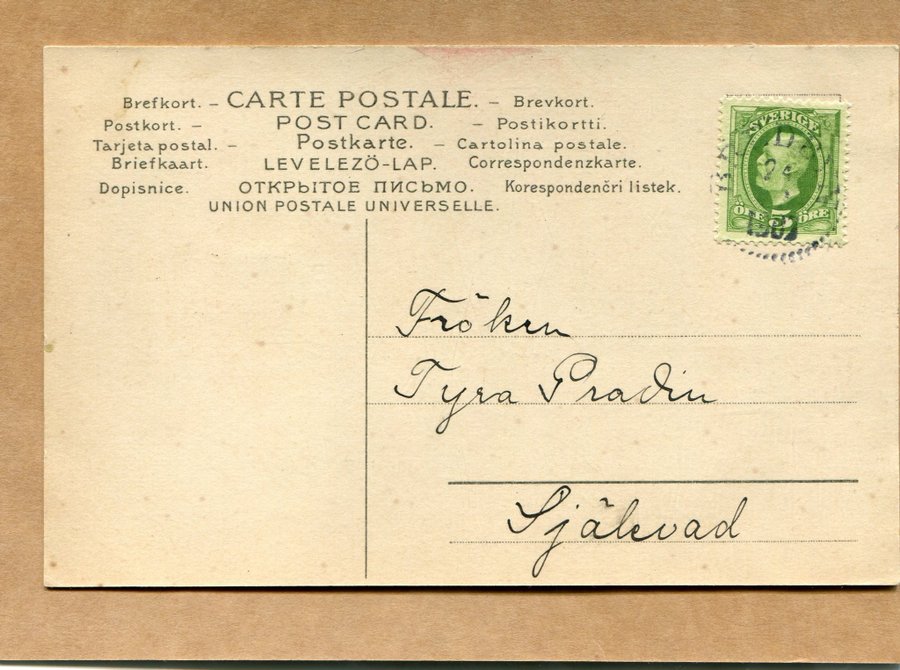 Brefkort. – CARTE POSTALE. – Brevkort.
Postkort. – POST CARD. – Postikortti.
Tarjeta postal. – Postkarte. – Cartolina postale.
Briefkaart. LEVELEZÖ-LAP. Correspondenzkarte.
Dopisnice. ОТКРЫТОЕ ПИСЬМО. Korespondenčri listek.
UNION POSTALE UNIVERSELLE.
SVERIGE
ÖRE 5 ÖRE
Fröken
Tyra Pradin
Själevad